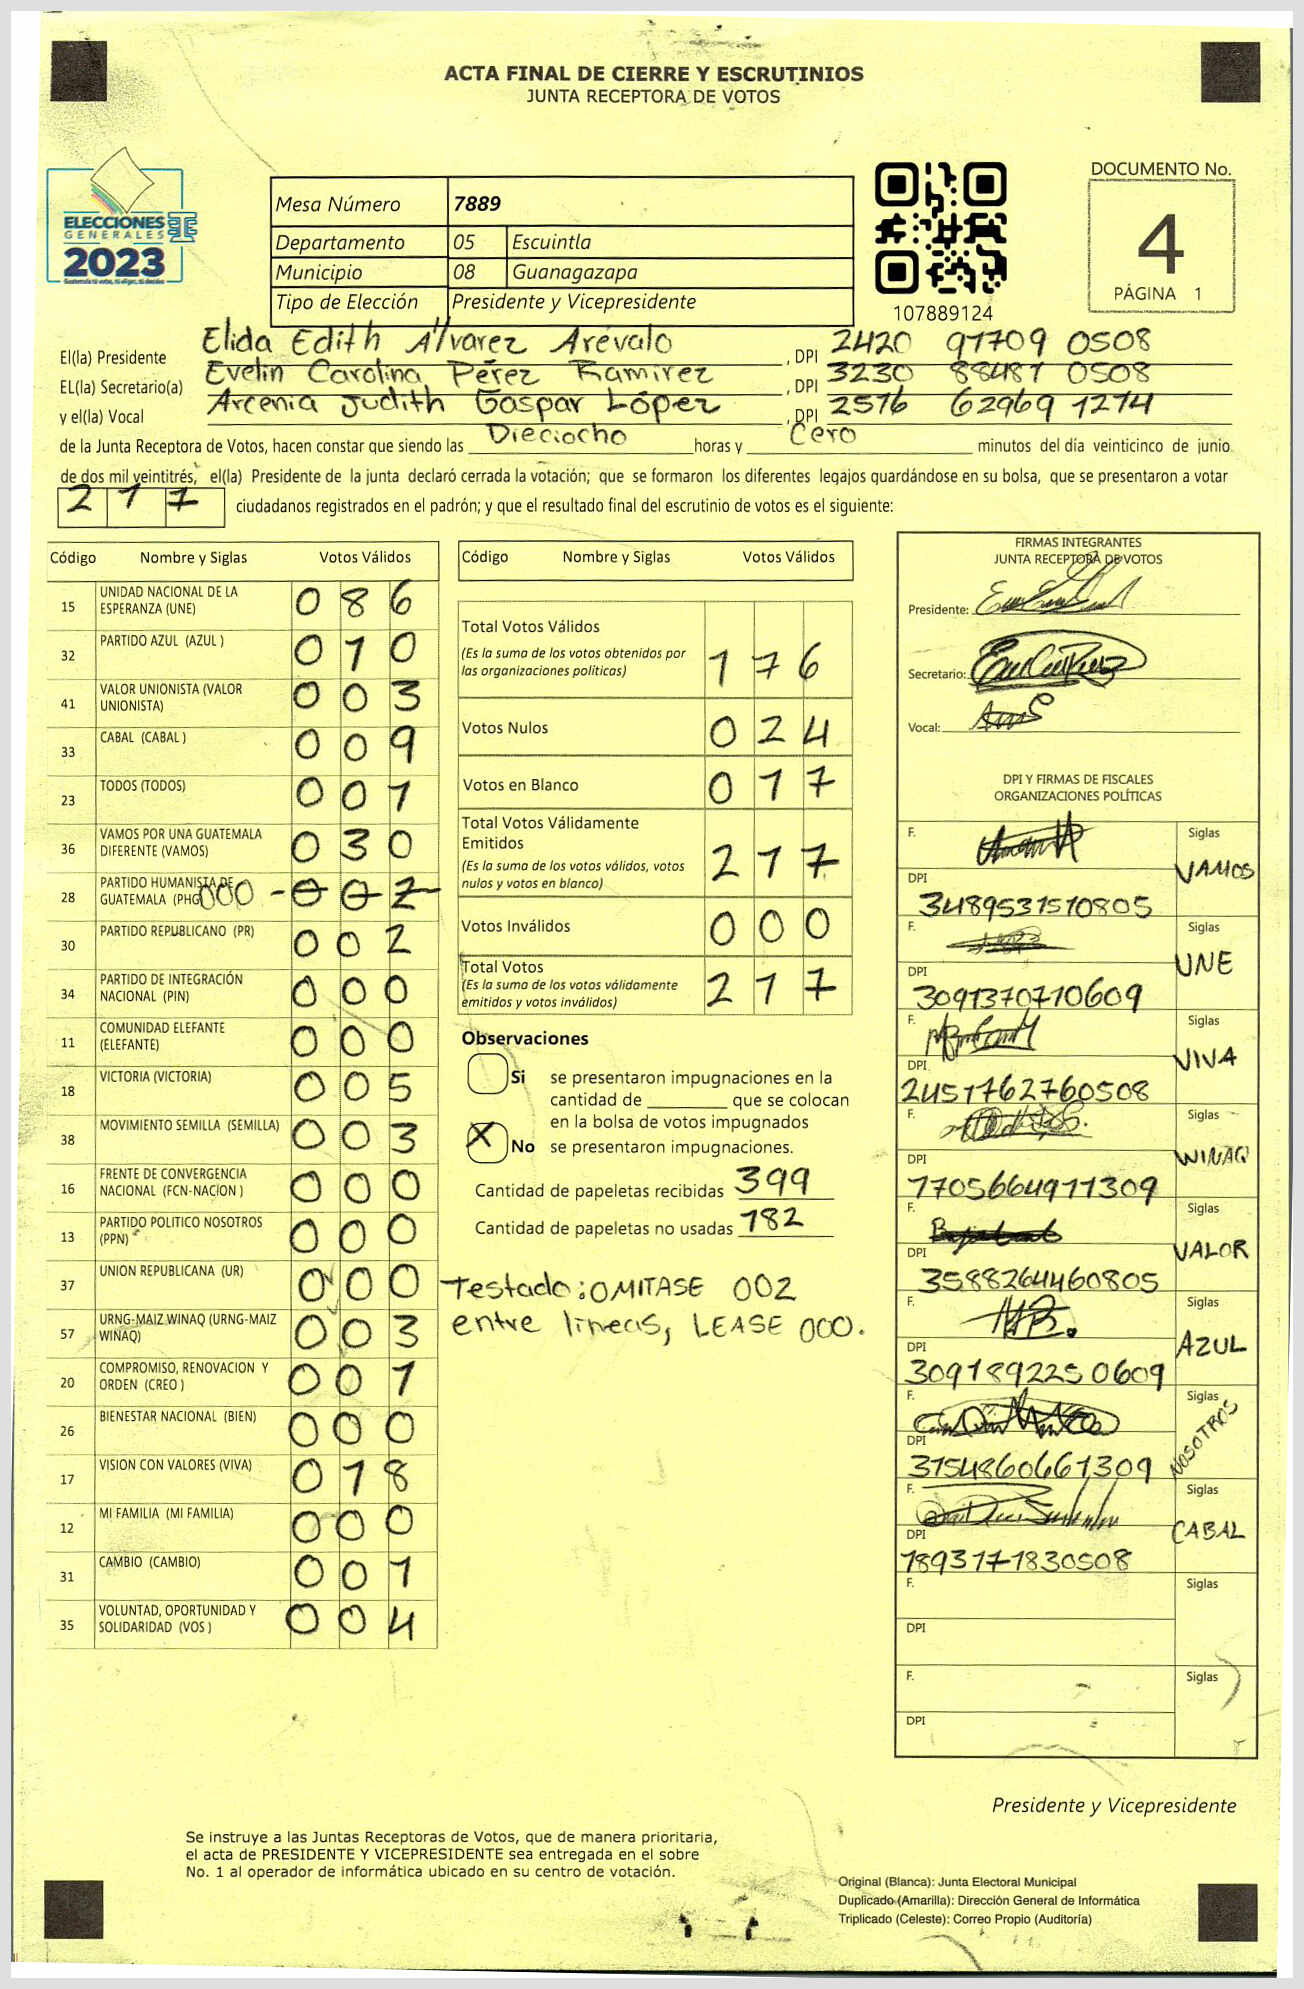 ACTA FINAL DE CIERRE Y ESCRUTINIOS
JUNTA RECEPTORA DE VOTOS
ELECCIONES
GENERALES
2023
Guatemala tú votas, tú eliges, tú decides
Mesa Número 7889
Departamento 05 Escuintla
Municipio 08 Guanagazapa
Tipo de Elección Presidente y Vicepresidente
107889124
DOCUMENTO No.
4
PÁGINA 1
El(la) Presidente Elida Edith Álvarez Arévalo, DPI 2420 97709 0508
EL(la) Secretario(a) Evelin Carolina Pérez Ramirez, DPI 3230 88487 0508
y el(la) Vocal Arcenia Judith Gaspar López, DPI 2576 62969 1274
de la Junta Receptora de Votos, hacen constar que siendo las Dieciocho horas y Cero minutos del día veinticinco de junio
de dos mil veintitrés, el(la) Presidente de la junta declaró cerrada la votación; que se formaron los diferentes legajos guardándose en su bolsa, que se presentaron a votar
217 ciudadanos registrados en el padrón; y que el resultado final del escrutinio de votos es el siguiente:
Código Nombre y Siglas Votos Válidos
15 UNIDAD NACIONAL DE LA ESPERANZA (UNE) 086
32 PARTIDO AZUL (AZUL ) 010
41 VALOR UNIONISTA (VALOR UNIONISTA) 003
33 CABAL (CABAL ) 009
23 TODOS (TODOS) 001
36 VAMOS POR UNA GUATEMALA DIFERENTE (VAMOS) 030
28 PARTIDO HUMANISTA DE GUATEMALA (PHG 000 - 002
30 PARTIDO REPUBLICANO (PR) 002
34 PARTIDO DE INTEGRACIÓN NACIONAL (PIN) 000
11 COMUNIDAD ELEFANTE (ELEFANTE) 000
18 VICTORIA (VICTORIA) 005
38 MOVIMIENTO SEMILLA (SEMILLA) 003
16 FRENTE DE CONVERGENCIA NACIONAL (FCN-NACION ) 000
13 PARTIDO POLITICO NOSOTROS (PPN) 000
37 UNION REPUBLICANA (UR) 000
57 URNG-MAIZ WINAQ (URNG-MAIZ WINAQ) 003
20 COMPROMISO, RENOVACION Y ORDEN (CREO ) 001
26 BIENESTAR NACIONAL (BIEN) 000
17 VISION CON VALORES (VIVA) 018
12 MI FAMILIA (MI FAMILIA) 000
31 CAMBIO (CAMBIO) 001
35 VOLUNTAD, OPORTUNIDAD Y SOLIDARIDAD (VOS ) 004
Código Nombre y Siglas Votos Válidos
Total Votos Válidos 176
(Es la suma de los votos obtenidos por
las organizaciones políticas)
Votos Nulos 024
Votos en Blanco 017
Total Votos Válidamente
Emitidos 217
(Es la suma de los votos válidos, votos
nulos y votos en blanco)
Votos Inválidos 000
Total Votos 217
(Es la suma de los votos válidamente
emitidos y votos inválidos)
Observaciones
Si se presentaron impugnaciones en la
cantidad de ________ que se colocan
en la bolsa de votos impugnados
X No se presentaron impugnaciones.
Cantidad de papeletas recibidas 399
Cantidad de papeletas no usadas 182
Testado: OMITASE 002
entre lineas, LEASE 000.
FIRMAS INTEGRANTES
JUNTA RECEPTORA DE VOTOS
Presidente:
Secretario:
Vocal:
DPI Y FIRMAS DE FISCALES
ORGANIZACIONES POLÍTICAS
F. Siglas VAMOS
DPI 3489531510805
F. Siglas UNE
DPI 3091370710609
F. Siglas VIVA
DPI 2451762760508
F. Siglas WINAQ
DPI 1705664911309
F. Siglas VALOR
DPI 3588264460805
F. Siglas AZUL
DPI 3091892250609
F. Siglas NOSOTROS
DPI 3154860661309
F. Siglas CABAL
DPI 1893171830508
F. Siglas
DPI
F. Siglas
DPI
Presidente y Vicepresidente
Se instruye a las Juntas Receptoras de Votos, que de manera prioritaria,
el acta de PRESIDENTE Y VICEPRESIDENTE sea entregada en el sobre
No. 1 al operador de informática ubicado en su centro de votación.
Original (Blanca): Junta Electoral Municipal
Duplicado (Amarilla): Dirección General de Informática
Triplicado (Celeste): Correo Propio (Auditoría)